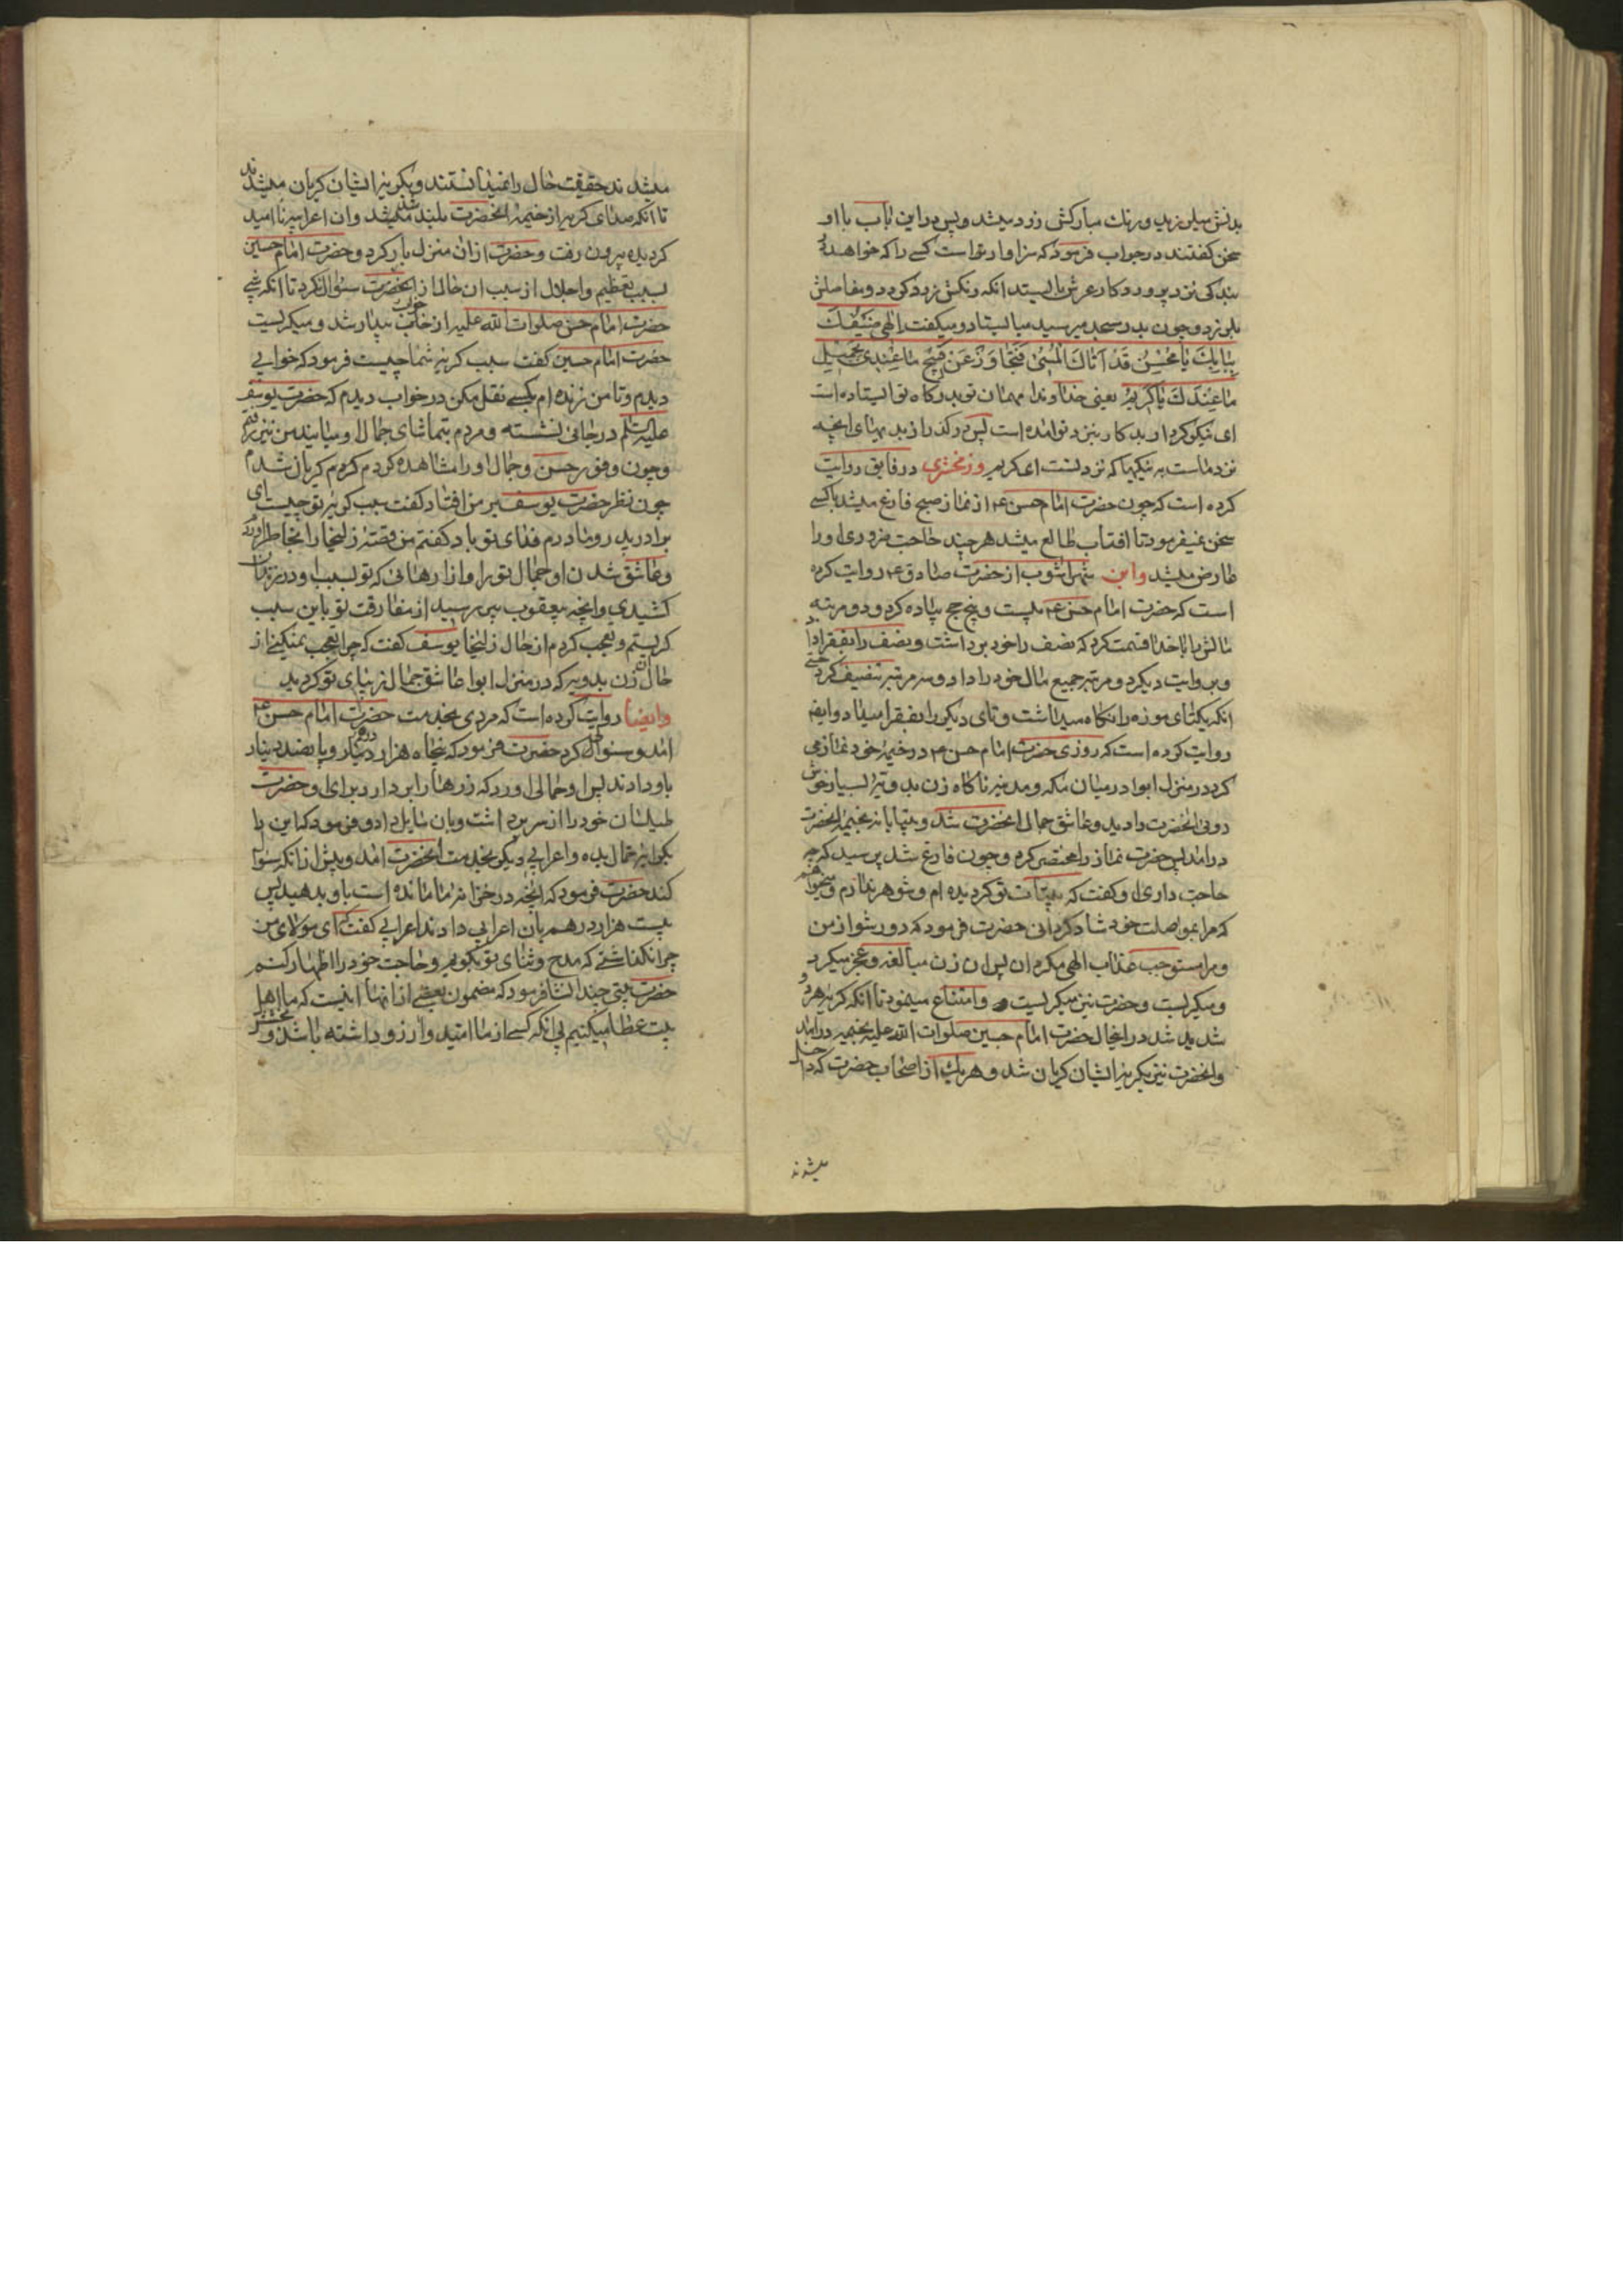 بدنش میلرزید و رنك مباركش زرد میشد و پس دراین باب با او
سخن كفتند در جواب فرمود كه سزاوار است كسی را كه خواهد
بندكی نزد پروردكار عرش بایستد انكه رنكش زرد كردد و مفاصلش
بلرزد و چون بدر مسجد میرسید میایستاد و میكفت الهی ضَیْفُكَ
بِبابِكَ یا مُحْسِنُ قَدْ اَتاكَ الْمُسیٔ فَتَجاوَزْ عَنْ قَبیحِ ما عِنْدی بِجَمیلِ
ما عِنْدَكَ یا كَریمُ یعنی خداوندا مهمان تو بدركاه تو ایستاده است
ای نیكو كردار بدكار بنزد تو امده است پس دركذر از بدیهای انچه
نزد ماست به نیكیها كه نزد تست ای كریم و زمخشری در فایق روایت
كرده است كه چون حضرت امام حسن ع از نماز صبح فارغ میشد باكسی
سخن نمیفرمود تا افتاب طالع میشد هر چند حاجت ضروری او را
عارض میشد و ابن شهراشوب از حضرت صادق ع روایت كرده
است كه حضرت امام حسن ع بیست و پنج حج پیاده كرد و دو مرتبه
مالش را با خدا قسمت كرد كه نصف را خود برداشت و نصف را بفقرا داد
و بروایت دیكر دو مرتبه جمیع مال خود را داد و سه مرتبه تنصیف كرد حتی
انكه یكتای موزه را نكاه میداشت و تای دیكر را بفقرا میداد و ایضا
روایت كرده است كه روزی حضرت امام حسن ع در خیمهٔ خود نماز می
كرد در منزل ابوا در میان مكه و مدینه ناكاه زن بدویهٔ بسیار خوش
روئی انحضرت را دید و عاشق جمال انحضرت شد و بیتابانه بخیمهٔ انحضرت
درامد پس حضرت نماز را مختصر كرد و چون فارغ شد پرسید كه چه
حاجت داری او كفت كه بیتاب تو كردیده ام و شوهر ندارم و میخواهم
كه مرا بمواصلت خود شاد كردانی حضرت فرمود كه دور شو از من
و مرا مستوجب عذاب الهی مكردان پس ان زن مبالغه و عجز میكرد
و میكریست و حضرت نیز میكریست و امتناع مینمود تا انكه كریه هر دو
شدید شد در اینحال حضرت امام حسین صلوات الله علیه بخیمه درامد
و انحضرت نیز بكریه ایشان كریان شد و هر یك از اصحاب حضرت كه داخل
میشدند
میشدند حقیقت حال را نمیدانستند و بكریه ایشان كریان میشدند
تا انكه صدای كریه از خیمهٔ انحضرت بلند شد و ان اعرابیه ناامید
كردیده بیرون رفت و حضرت از ان منزل بار كرد و حضرت امام حسین
بسبب تعظیم و اجلال از سبب ان حال از انحضرت سئوال نكرد تا انكه شبی
حضرت امام حسن صلوات الله علیه از خواب بیدار شد و میكریست
حضرت امام حسین كفت سبب كریه شما چیست فرمود كه خوابی
دیدم و تا من زنده ام بكسی نقل مكن در خواب دیدم كه حضرت یوسف
علیه السلم در جائی نشسته و مردم بتماشای جمال او میایند من نیز رفتم
و چون وفور حسن و جمال او را مشاهده كردم كردم كریان شدم
چون نظر حضرت یوسف بر من افتاد كفت سبب كریه تو چیست ای
برادر پدر و مادرم فدای تو باد كفتم من قصهٔ زلیخا را بخاطر اوردم
و عاشق شدن او جمال تو را و ازارهائی كه تو بسبب او در زندان
كشیدی و انچه یعقوب پیر رسید از مفارقت تو باین سبب
كریستم و تعجب كردم از حال زلیخا یوسف كفت كه چرا تعجب نمیكنی از
حال ان زن بدویه كه در منزل ابوا عاشق جمال زیبای تو كردید
وایضا روایت كرده است كه مردی بخدمت حضرت امام حسن ع
امد و سئوال كرد حضرت فرمود كه پنجاه هزار درهم و پانصد دینار
باو دادند پس او حمالی اورد كه زرها را بردارد برای او حضرت
طیلسان خود را از سر برداشت و بان سایل داد و فرمود كه این را
بكرایه حمال بده و اعرابی دیكر بخدمت انحضرت امد و پیش از انكه سئوال
كند حضرت فرمود كه انچه در خزانه ما مانده است باو بدهید پس
بیست هزار درهم بان اعرابی دادند اعرابی كفت كه ای مولای من
چرا نكذاشتی كه مدح و ثنای تو بكویم و حاجت خود را اظهار كنم
حضرت بیتی چند انشا فرمود كه مضمون بعضی از انها اینست كه ما اهل
بیت عطا میكنیم بی انكه كسی از ما امید و ارزو داشته باشد و